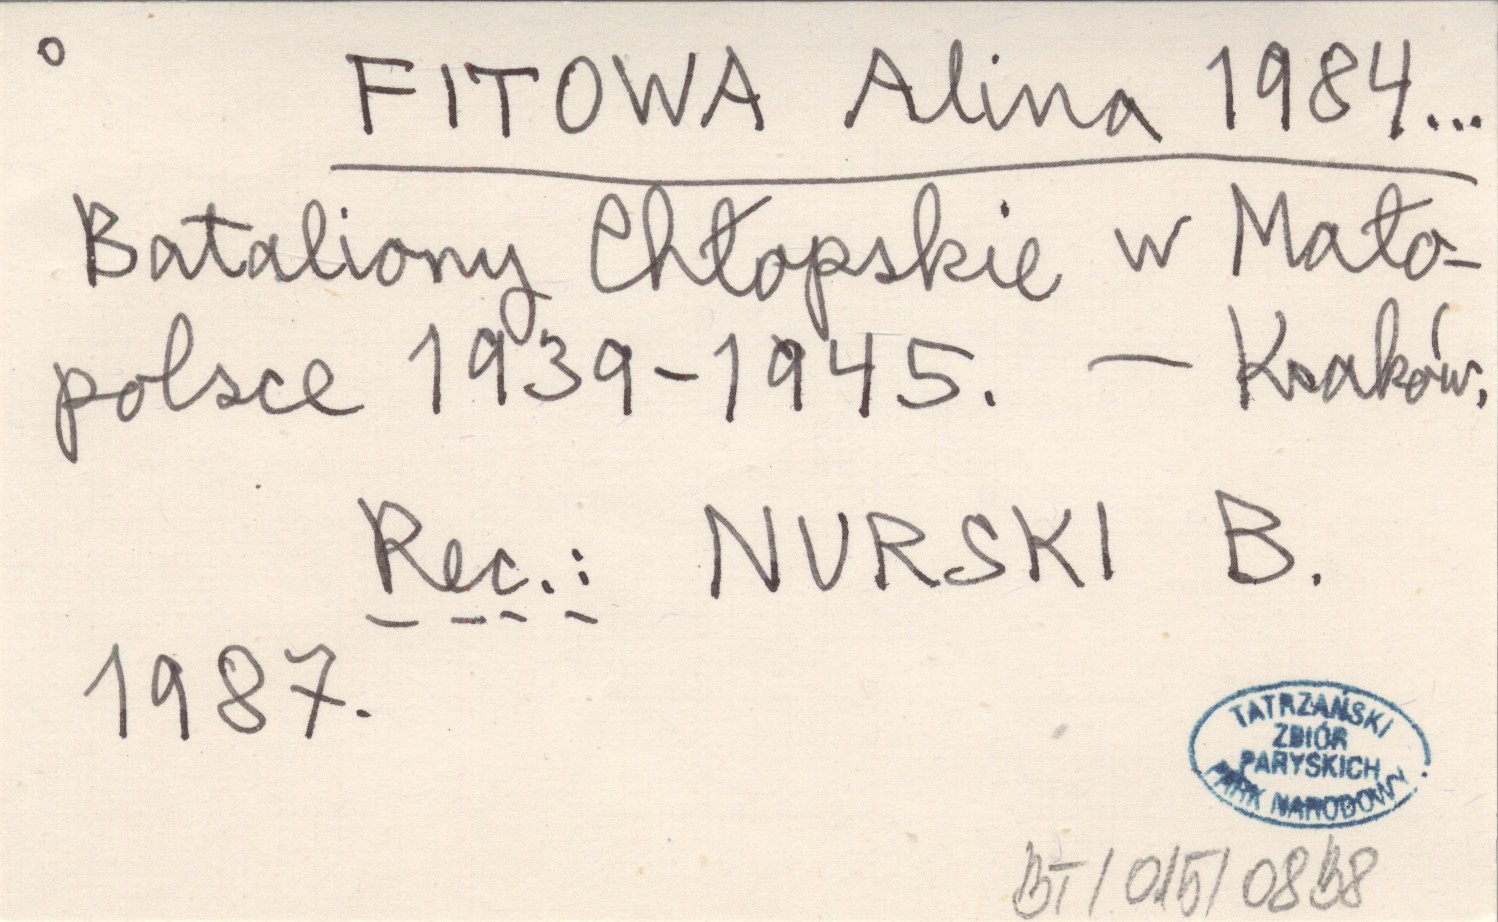 FITOWA Alina 1984...
Bataliony Chłopskie w Mało-
polsce 1939-1945. — Kraków.
Rec.: NURSKI B.
1987.
TATRZAŃSKI
ZBIÓR
PARYSKICH
PARK NARODOWY
BT/015/